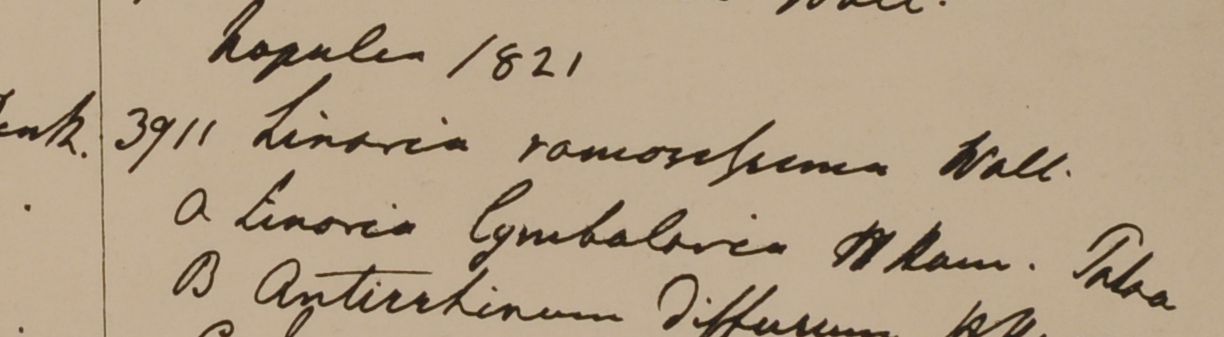 Wall.
Napalia 1821
3911 Linaria ramosissima Wall.
A Linaria Cymbalaria H Ham.
B Antirrhinum diffusum